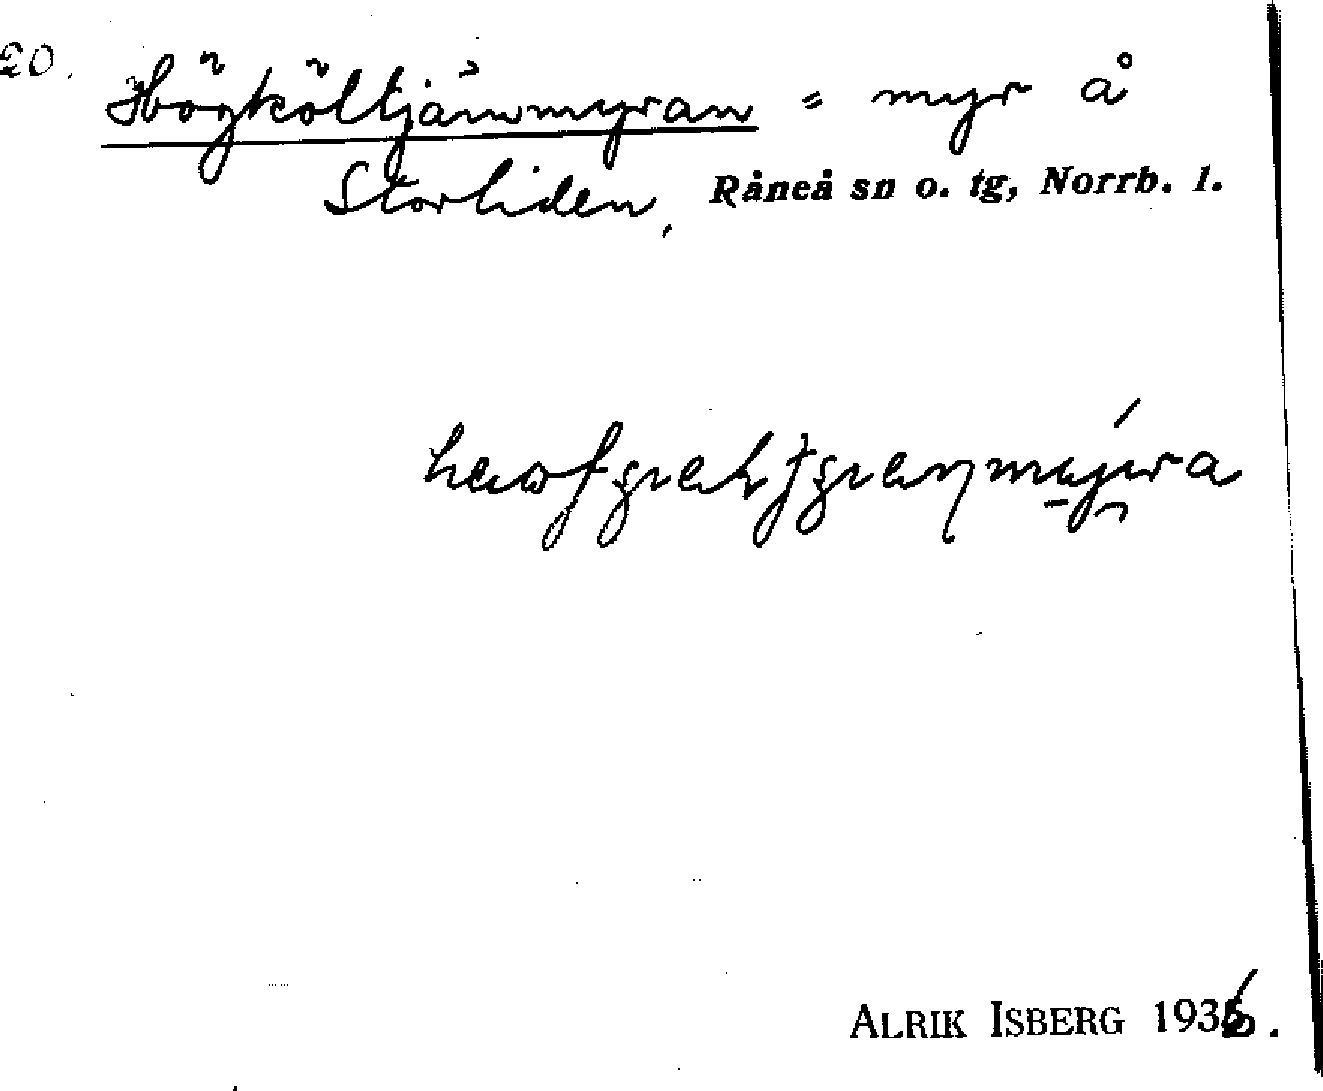 20. Högköltjärnmyran = myr å
Storliden, Råneå sn o. tg, Norrb. l.
ALRIK ISBERG 1936.